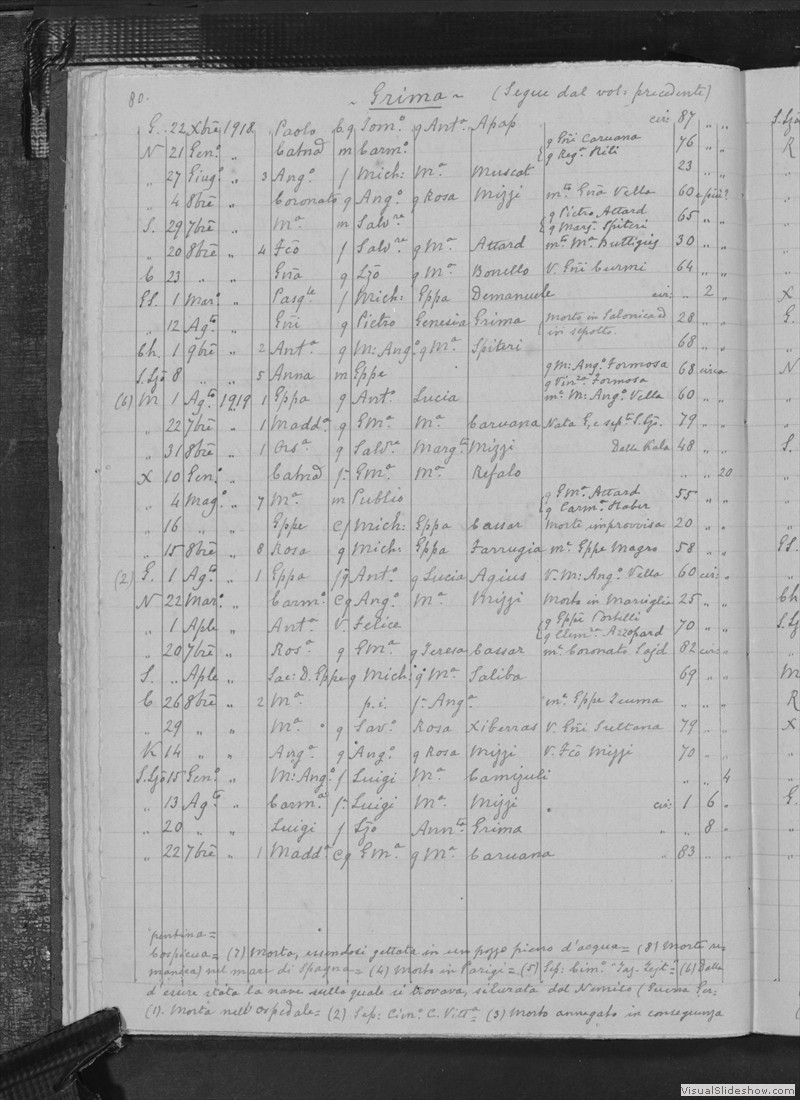 80.
- Grima - (Segue dal vol: precedente)
G. 22 Xbre 1918 Paolo C g Tom.o g Ant.a Apap cir: 87 " "
N 21 Gen.o " m Carm.o { g Gni Caruana g Reg.a 76 " "
" 27 Giug.o " 3 Ang.o f Mich: M.a Muscat 23 " "
" 4 8bre " Coronato g Ang.o g Rosa Mizzi m.to Gna Vella 60 e più?
S. 29 7bre " M.a m Salv.re { g Pietro Attard g Marg.a Spiteri 65 " "
" 20 8bre " 4 Fco f Salv.re g M.a Attard m.to M.a Buttigieg 30 " "
C 23 " " Gna g Ljo g M.a Bonello V. Gni Curmi 64 " "
GS. 1 Mar.o " Pasq.le f Mich: Gppa Demanuele cir: " 2 "
" 12 Ag.to " Gni g Pietro Genesia Grima { Morto in Salonica ed ivi sepolto. 28 " "
Ch. 1 9bre " 2 Ant.a g M: Ang.o g M.a Spiteri 68 " "
S.Ljo 8 " " 5 Anna m Gppe g M: Ang.o Formosa g Vin.za Formosa 68 circa
(6) M 1 Ag.to 1919 1 Gppa g Ant.o Lucia m.a M: Ang.o Vella 60 " "
" 22 7bre " 1 Madd.a g GM.a M.a Caruana Nata G, e sep.ta S.Ljo. 79 " "
" 31 8bre " 1 Ors.a g Salv.re Marg.ta Mizzi Dalla Rabato 48 " "
X 10 Gen.o " f GM.a M.a Refalo " " 20
" 4 Mag.o " 7 M.a m Publio { g GM.a Attard g Carm.a Staber 55 " "
" 16 " " Gppe C f Mich: Gppa Cassar Morte improvvisa 20 " "
" 15 8bre " 8 Rosa g Mich: Gppa Farrugia m.a Gppe Magro 58 " "
(2) G. 1 Ag.to " 1 Gppa g Ant.o g Lucia Agius V. M: Ang.o Vella 60 cir: "
N 22 Mar.o " Carm.o C g Ang.o M.a Mizzi Morto in Marsiglia 25 " "
" 1 Aple " Ant.a V. Felice { g Gppe Portelli g Clem.a Azzopard 70 " "
" 20 7bre " Ros.a g GM.a g Teresa Cassar m.a Coronato Sajd 82 cir: "
S. " Aple " Sac: D. Gppe g Mich: g M.a Saliba 69 " "
C 26 8bre " 2 M.a p.i. f Ang.a m.a Gppe Zeuma " " "
" 29 " " M.a g Sav.o Rosa Xiberras V. Gni Sultana 79 " "
K 14 " " Ang.a g Ang.o g Rosa Mizzi V. Fco Mizzi 70 " "
S.Ljo 15 Gen.o " M: Ang.o f Luigi M.a Camizuli " " 4
" 13 Ag.to " Carm.a f Luigi M.a Mizzi cir: 1 6 "
" 20 " " Luigi f Ljo Ann.ta Grima " 8 "
" 22 7bre " 1 Madd.a C g GM.a g M.a Caruana " 83 " "
pentina=
Cospicua= (7) Morta, essendosi gettata in un pozzo pieno d'acqua= (8) Morte re-
nel mare di Spagna= (4) Morto in Parigi= (5) Sep: Cim.o (6) Dalla
d'essere stata la nave sulla quale si trovava, silurata dal Nemico (Guerra
(1). Morta nell'Ospedale= (2) Sep: Cim.o C. Vitt.a= (3) Morto annegato in conseguenza
S.Ljo
R
X
G.
N
S.
GS.
Ch
S.Ljo
M
R
X
G.
VisualSlideshow.com